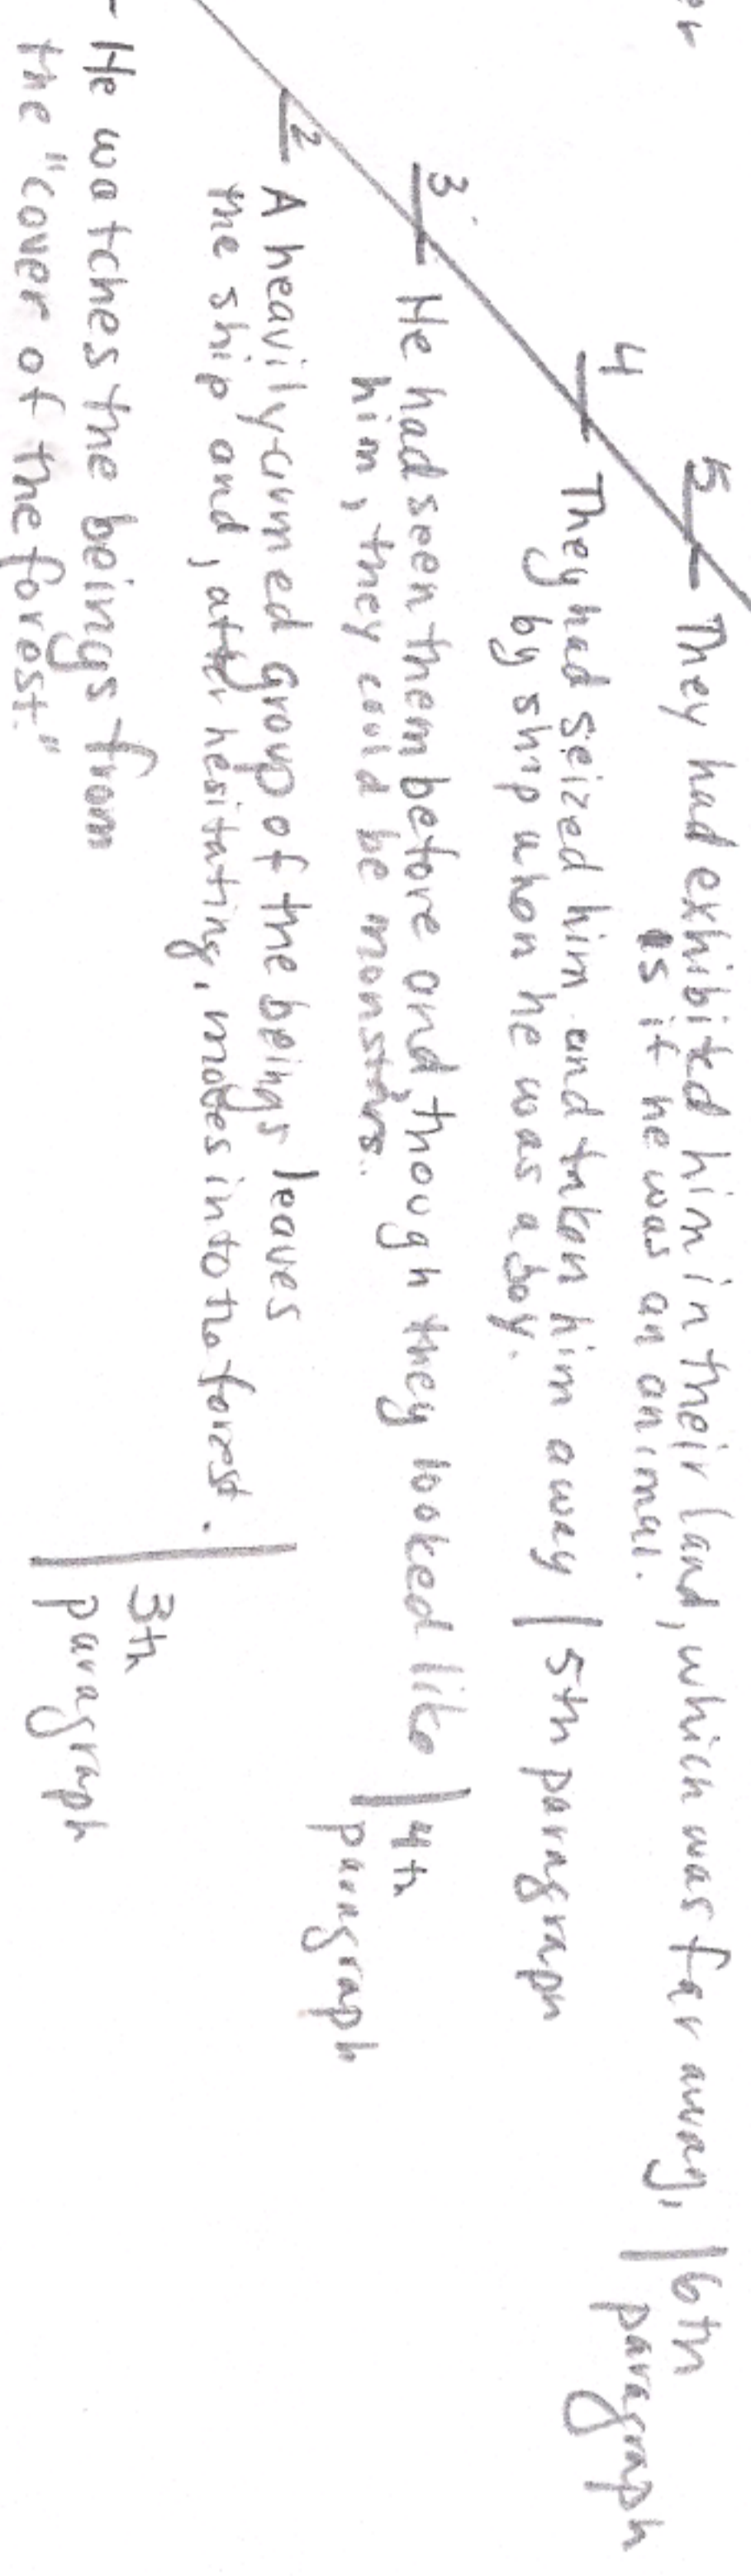 er
5 They had exhibited him in their land, which was far away, | 6th
as if he was an animal. paragraph
4 They had seized him and taken him away | 5th paragraph
by ship when he was a boy.
3 He had seen them before and, though they looked like | 4th
him, they could be monsters. paragraph
2 A heavily armed group of the beings leaves
the ship and, after hesitating, moves into the forest.
3th
paragraph
- He watches the beings from
the "cover of the forest."